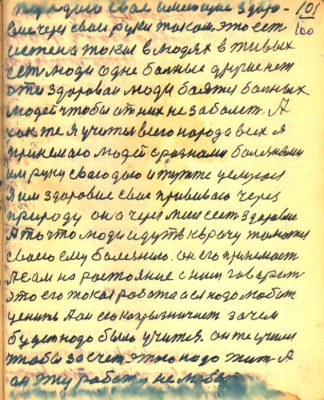 101
передаю свае имеющие здоро-
вие через свои руки токам. это ест
истена токи в людях в живых
сет люди одне болные другие нет
эти здороваи люди боятся болных
людей чтобы от них не заболет. А
как же я учител всего народа всех я
принемаю людей с разнами болезнями
им руки своё даю и тут же целуюся
Я им здоровие свае прививаю через
природу она через мене сеет здоровие
А то что люди идуть к врачу жалются
своею ему болезнию. он его принемает
А сам на растояние с ним говарит
это его токая работа а ея надо любит
ценить А ои ею какразничит зачем
будет надо было учится. он же учился
чтобы за счет этого надо жит. А
он эту работу не любит
100